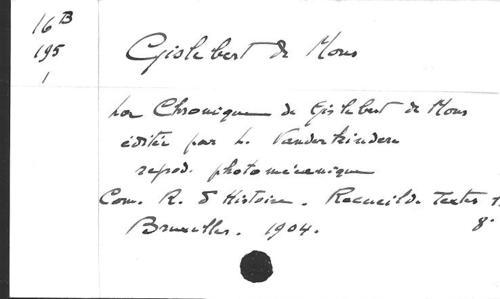 16 B
195
1
Gislebert de Mons
La Chronique de Gislebert de Mons
éditée par L. Vanderkindere
reprod. photomécanique
Com. R. d'Histoire. Recueil de Textes 1.
Bruxelles. 1904. 8°